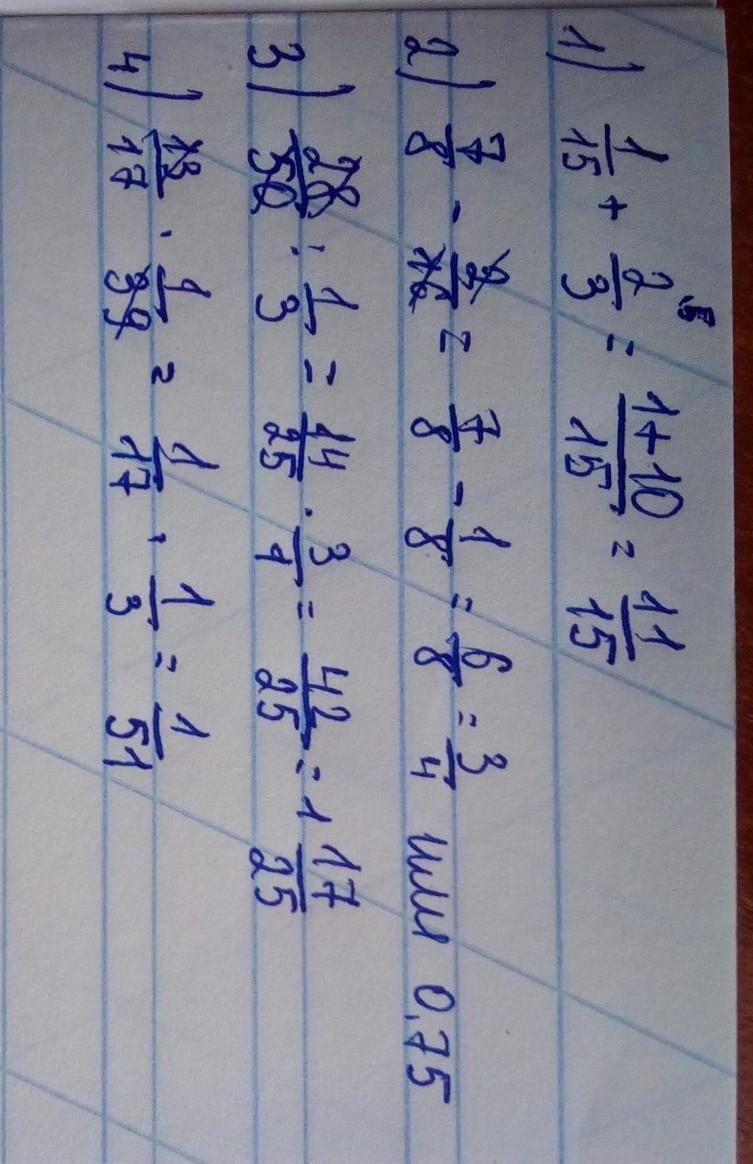 1) 1/15 + 2/3 ⁵ = 1+10/15 = 11/15
2) 7/8 - 2/16 = 7/8 - 1/8 = 6/8 = 3/4 или 0,75
3) 28/50 : 1/3 = 14/25 · 3/1 = 42/25 = 1 17/25
4) 13/17 · 1/39 = 1/17 · 1/3 = 1/51